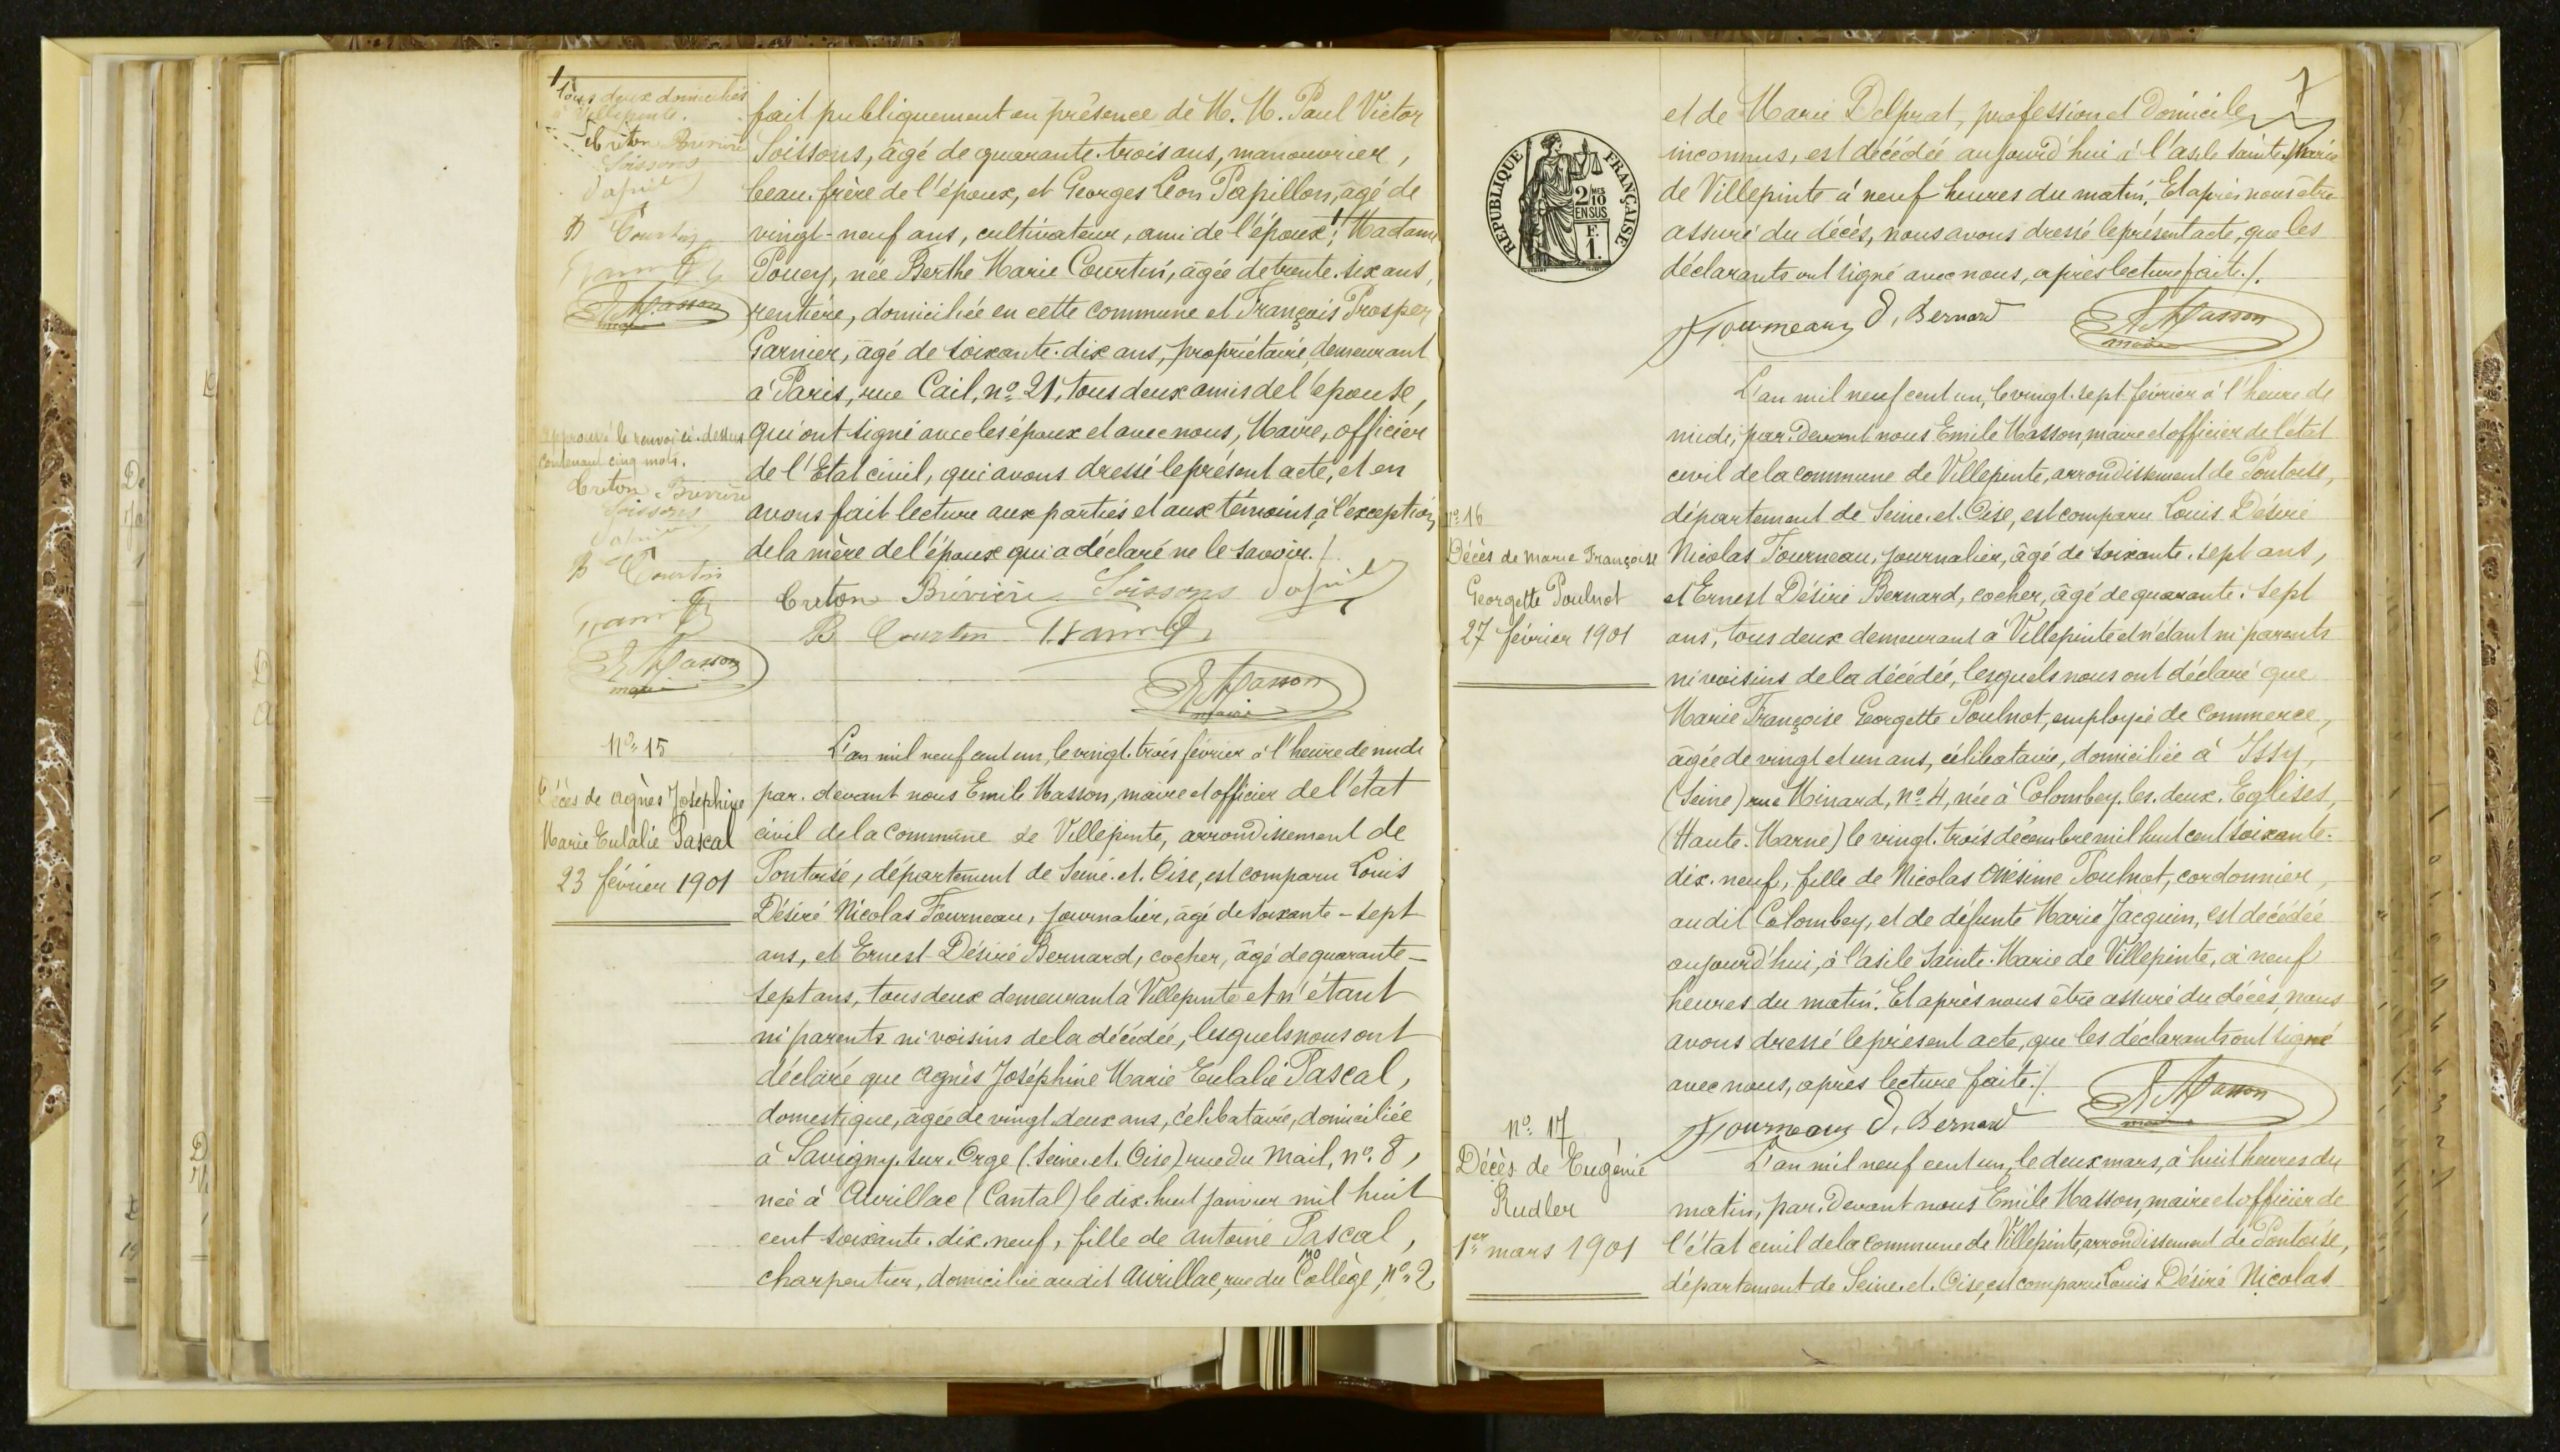 1
Tous deux domiciliés
à Villepinte.
Creton Brivière
Soissons
B Courtin
E Masson
maire
approuvé le renvoi ci-dessus
contenant cinq mots.
Creton Brivière
Soissons
B Courtin
E Masson
maire
fait publiquement en présence de M. M. Paul Victor
Soissons, âgé de quarante-trois ans, manouvrier,
beau-frère de l'époux, et Georges Léon Papillon, âgé de
vingt-neuf ans, cultivateur, ami de l'époux 1; Madame
Pouey, née Berthe Marie Courtin, âgée de trente-six ans,
rentière, domiciliée en cette commune et François Prosper
Garnier, âgé de soixante-dix ans, propriétaire, demeurant
à Paris, rue Cail, no 21, tous deux amis de l'épouse,
qui ont signé avec les époux et avec nous, Maire, officier
de l'Etat civil, qui avons dressé le présent acte, et en
avons fait lecture aux parties et aux témoins, à l'exception
de la mère de l'époux qui a déclaré ne le savoir./.
Creton Brivière Soissons
B Courtin
E Masson
maire
No 15
Décès de Agnès Joséphine
Marie Eulalie Pascal
23 février 1901
L'an mil neuf cent un, le vingt-trois février à l'heure de midi
par-devant nous Emile Masson, maire et officier de l'état
civil de la commune de Villepinte, arrondissement de
Pontoise, département de Seine-et-Oise, est comparu Louis
Désiré Nicolas Fourneau, journalier, âgé de soixante-sept
ans, et Ernest Désiré Bernard, cocher, âgé de quarante-
sept ans, tous deux demeurant à Villepinte et n'étant
ni parents ni voisins de la décédée, lesquels nous ont
déclaré que Agnès Joséphine Marie Eulalie Pascal,
domestique, âgée de vingt-deux ans, célibataire, domiciliée
à Savigny-sur-Orge (Seine-et-Oise) rue du Mail, no 8,
née à Aurillac (Cantal) le dix-huit janvier mil huit
cent soixante-dix-neuf, fille de Antoine Pascal,
charpentier, domicilié audit Aurillac, rue du Collège, no 2,
7
RÉPUBLIQUE FRANÇAISE
2/10
EN SUS
F.
1.
et de Marie Delprat, profession et domicile
inconnus, est décédée aujourd'hui à l'asile Sainte-Marie
de Villepinte à neuf heures du matin. Et après nous être
assuré du décès, nous avons dressé le présent acte, que les
déclarants ont signé avec nous, après lecture faite./.
Fourneaux D. Bernard E Masson
maire
No 16
Décès de Marie Françoise
Georgette Poulnot
27 février 1901
L'an mil neuf cent un, le vingt-sept février à l'heure de
midi, par-devant nous Emile Masson, maire et officier de l'état
civil de la commune de Villepinte, arrondissement de Pontoise,
département de Seine-et-Oise, est comparu Louis Désiré
Nicolas Fourneau, journalier, âgé de soixante-sept ans,
et Ernest Désiré Bernard, cocher, âgé de quarante-sept
ans, tous deux demeurant à Villepinte et n'étant ni parents
ni voisins de la décédée, lesquels nous ont déclaré que
Marie Françoise Georgette Poulnot, employée de commerce,
âgée de vingt et un ans, célibataire, domiciliée à Issy,
(Seine) rue Minard, no 4, née à Colombey-les-deux-Eglises,
(Haute-Marne) le vingt-trois décembre mil huit cent soixante-
dix-neuf, fille de Nicolas Onésime Poulnot, cordonnier,
audit Colombey, et de défunte Marie Jacquin, est décédée
aujourd'hui, à l'asile Sainte-Marie de Villepinte, à neuf
heures du matin. Et après nous être assuré du décès, nous
avons dressé le présent acte, que les déclarants ont signé
avec nous, après lecture faite./.
Fourneaux D. Bernard E Masson
maire
No 17
Décès de Eugénie
Rudler
1er mars 1901
L'an mil neuf cent un, le deux mars, à huit heures du
matin, par-devant nous Emile Masson, maire et officier de
l'état civil de la commune de Villepinte, arrondissement de Pontoise,
département de Seine-et-Oise, est comparu Louis Désiré Nicolas